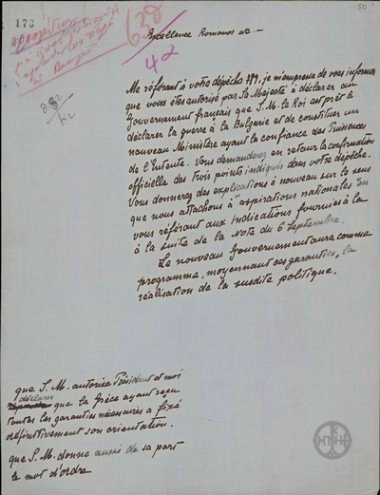 173
50
638
42
882
κ2
Excellence Romanos etc –
Me référant à votre dépêche 779, je m'empresse de vous informer
que vous êtes autorisé par Sa Majesté à déclarer au
Gouvernement français que S.M. le Roi est prêt à
déclarer la guerre à la Bulgarie et de constituer un
nouveau Ministère ayant la confiance des Puissances
de l'Entente. Vous demanderez en retour la confirmation
officielle des trois points indiqués dans votre dépêche.
Vous donnerez des explications à nouveau sur le sens
que nous attachons à "aspirations nationales" en
vous référant aux indications fournies à la
à la suite de la Note du 6 Septembre.
Le nouveau Gouvernement aura comme
programme, moyennant ces garanties, la
réalisation de la susdite politique.
que S.M. autorise Président et moi
déclarer que la Grèce ayant reçu
toutes les garanties nécessaires a fixé
définitivement son orientation.
que S.M. donne aussi de sa part
le mot d'ordre